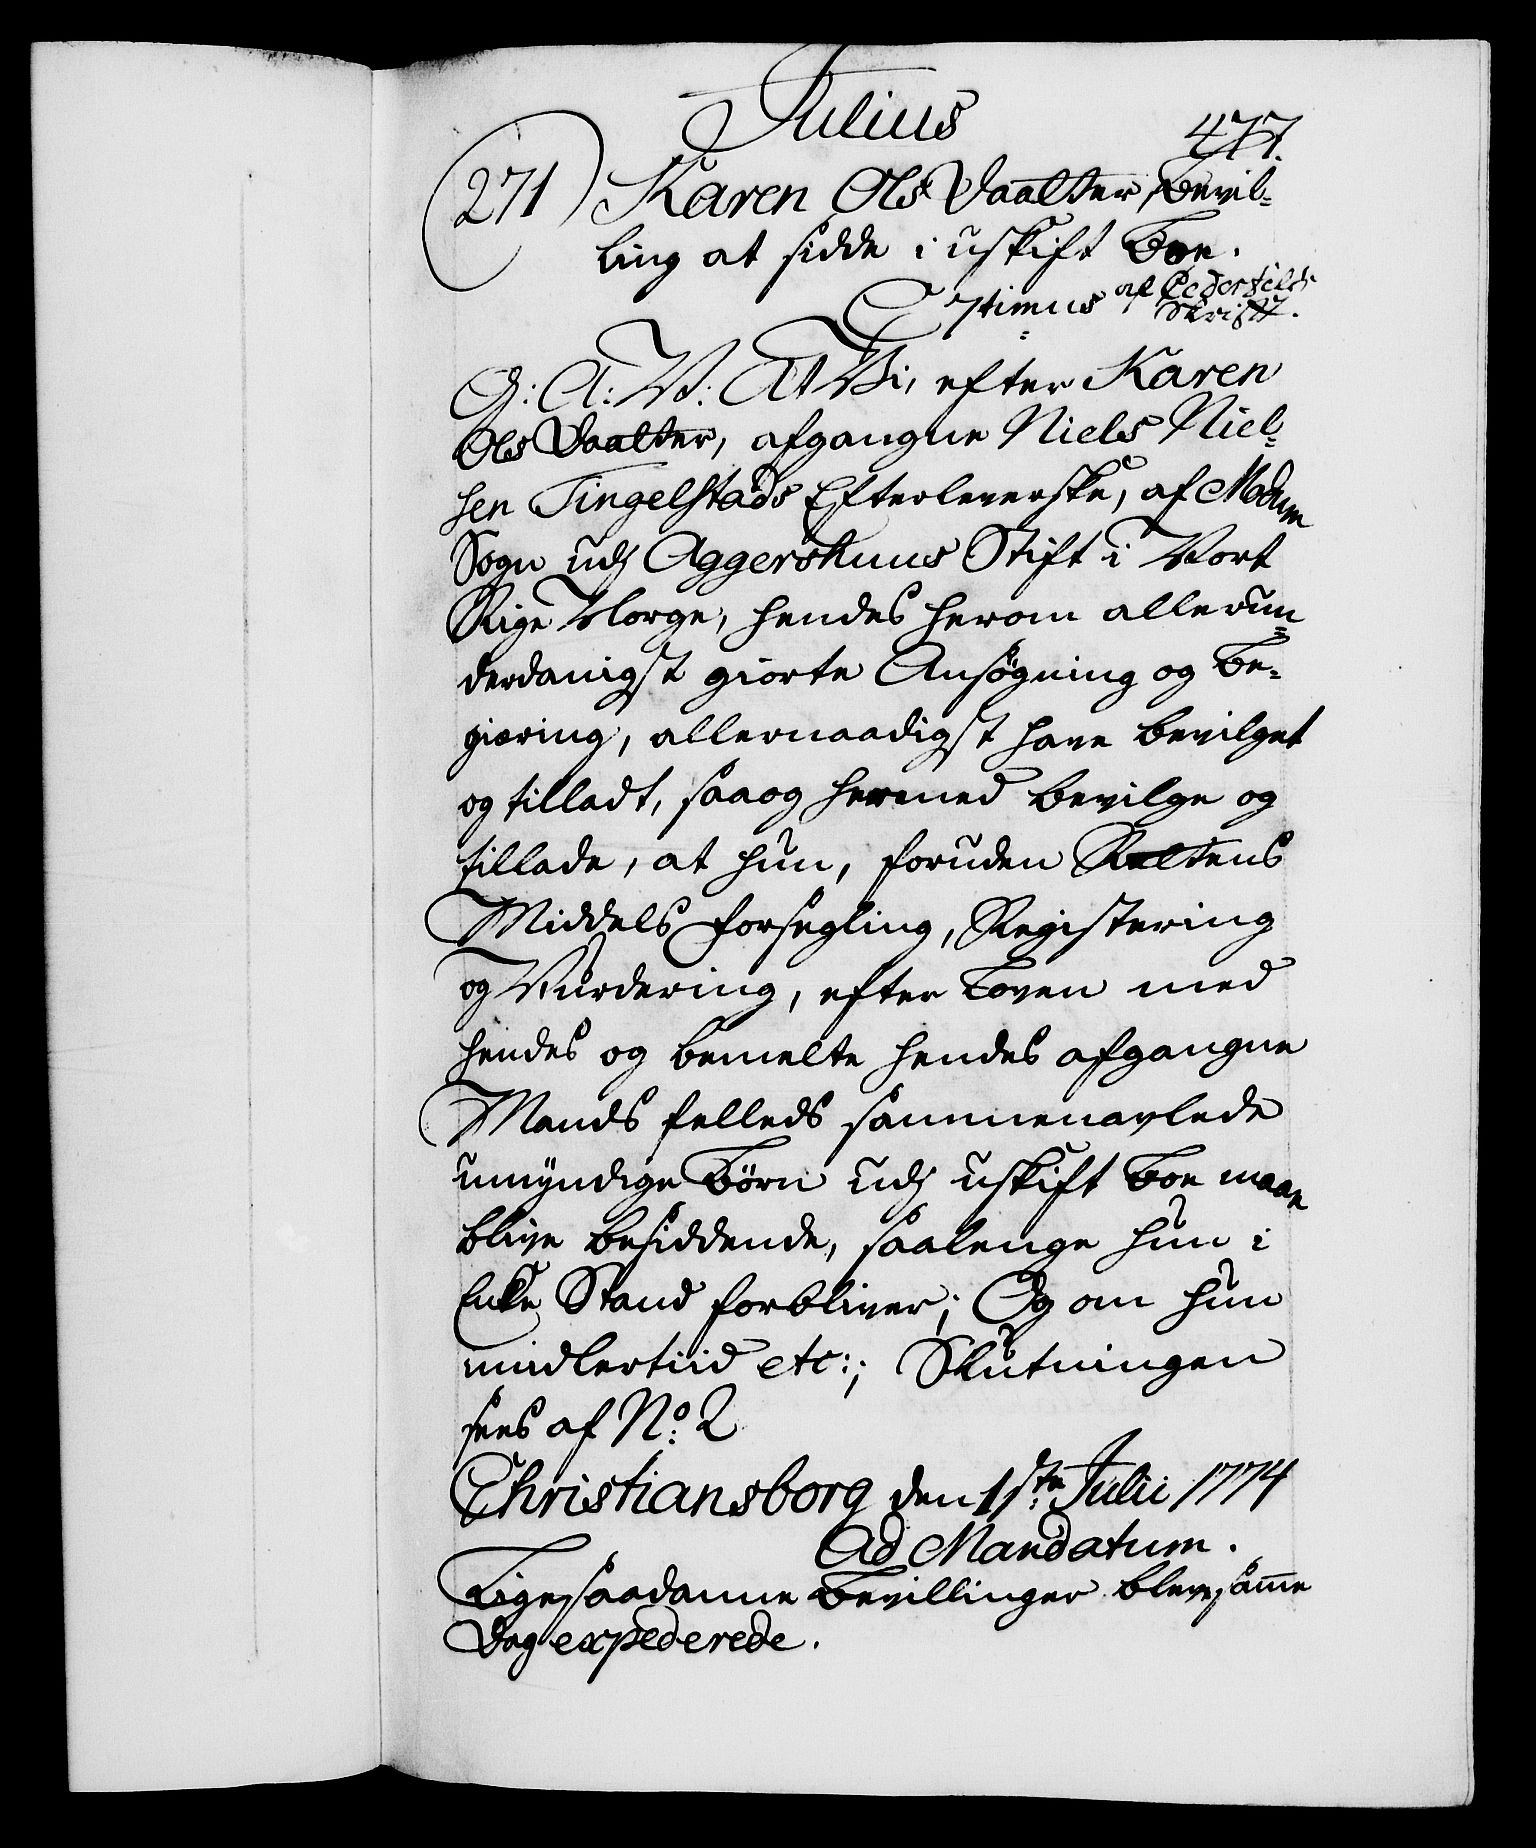 Julius
477.
271) Karen Ols Daatter, Bevil-
ling at sidde i uskift Boe.
af Pedersfeldts
Skrift.
G: A: V: At Vi, efter Karen
Ols Daatter, afgangne Niels Niel-
sen Tingelstads Efterleverske, af Modum
Sogn udj Aggershuus Stift i Vort
Rige Norge, hendes herom allerun-
derdanigst giorte Ansøgning og Be-
giæring, allernaadigst have bevilget
og tilladt, saa og hermed bevilge og
tillade, at hun, foruden Rettens
Middels Forsegling, Registering
og Vurdering, efter Loven med
hendes og bemelte hendes afgangne
Mands felleds sammenavlede
umyndige Børn udj uskift Boe maae
blive besiddende, saalenge hun i
Enke Stand forbliver; Og om hun
midlertiid etc:; Slutningen
sees af No: 2
Christiansborg den 1ste Julii 1774
Ad Mandatum.
Ligesaadanne Bevillinger bleve samme
Dag expederede.